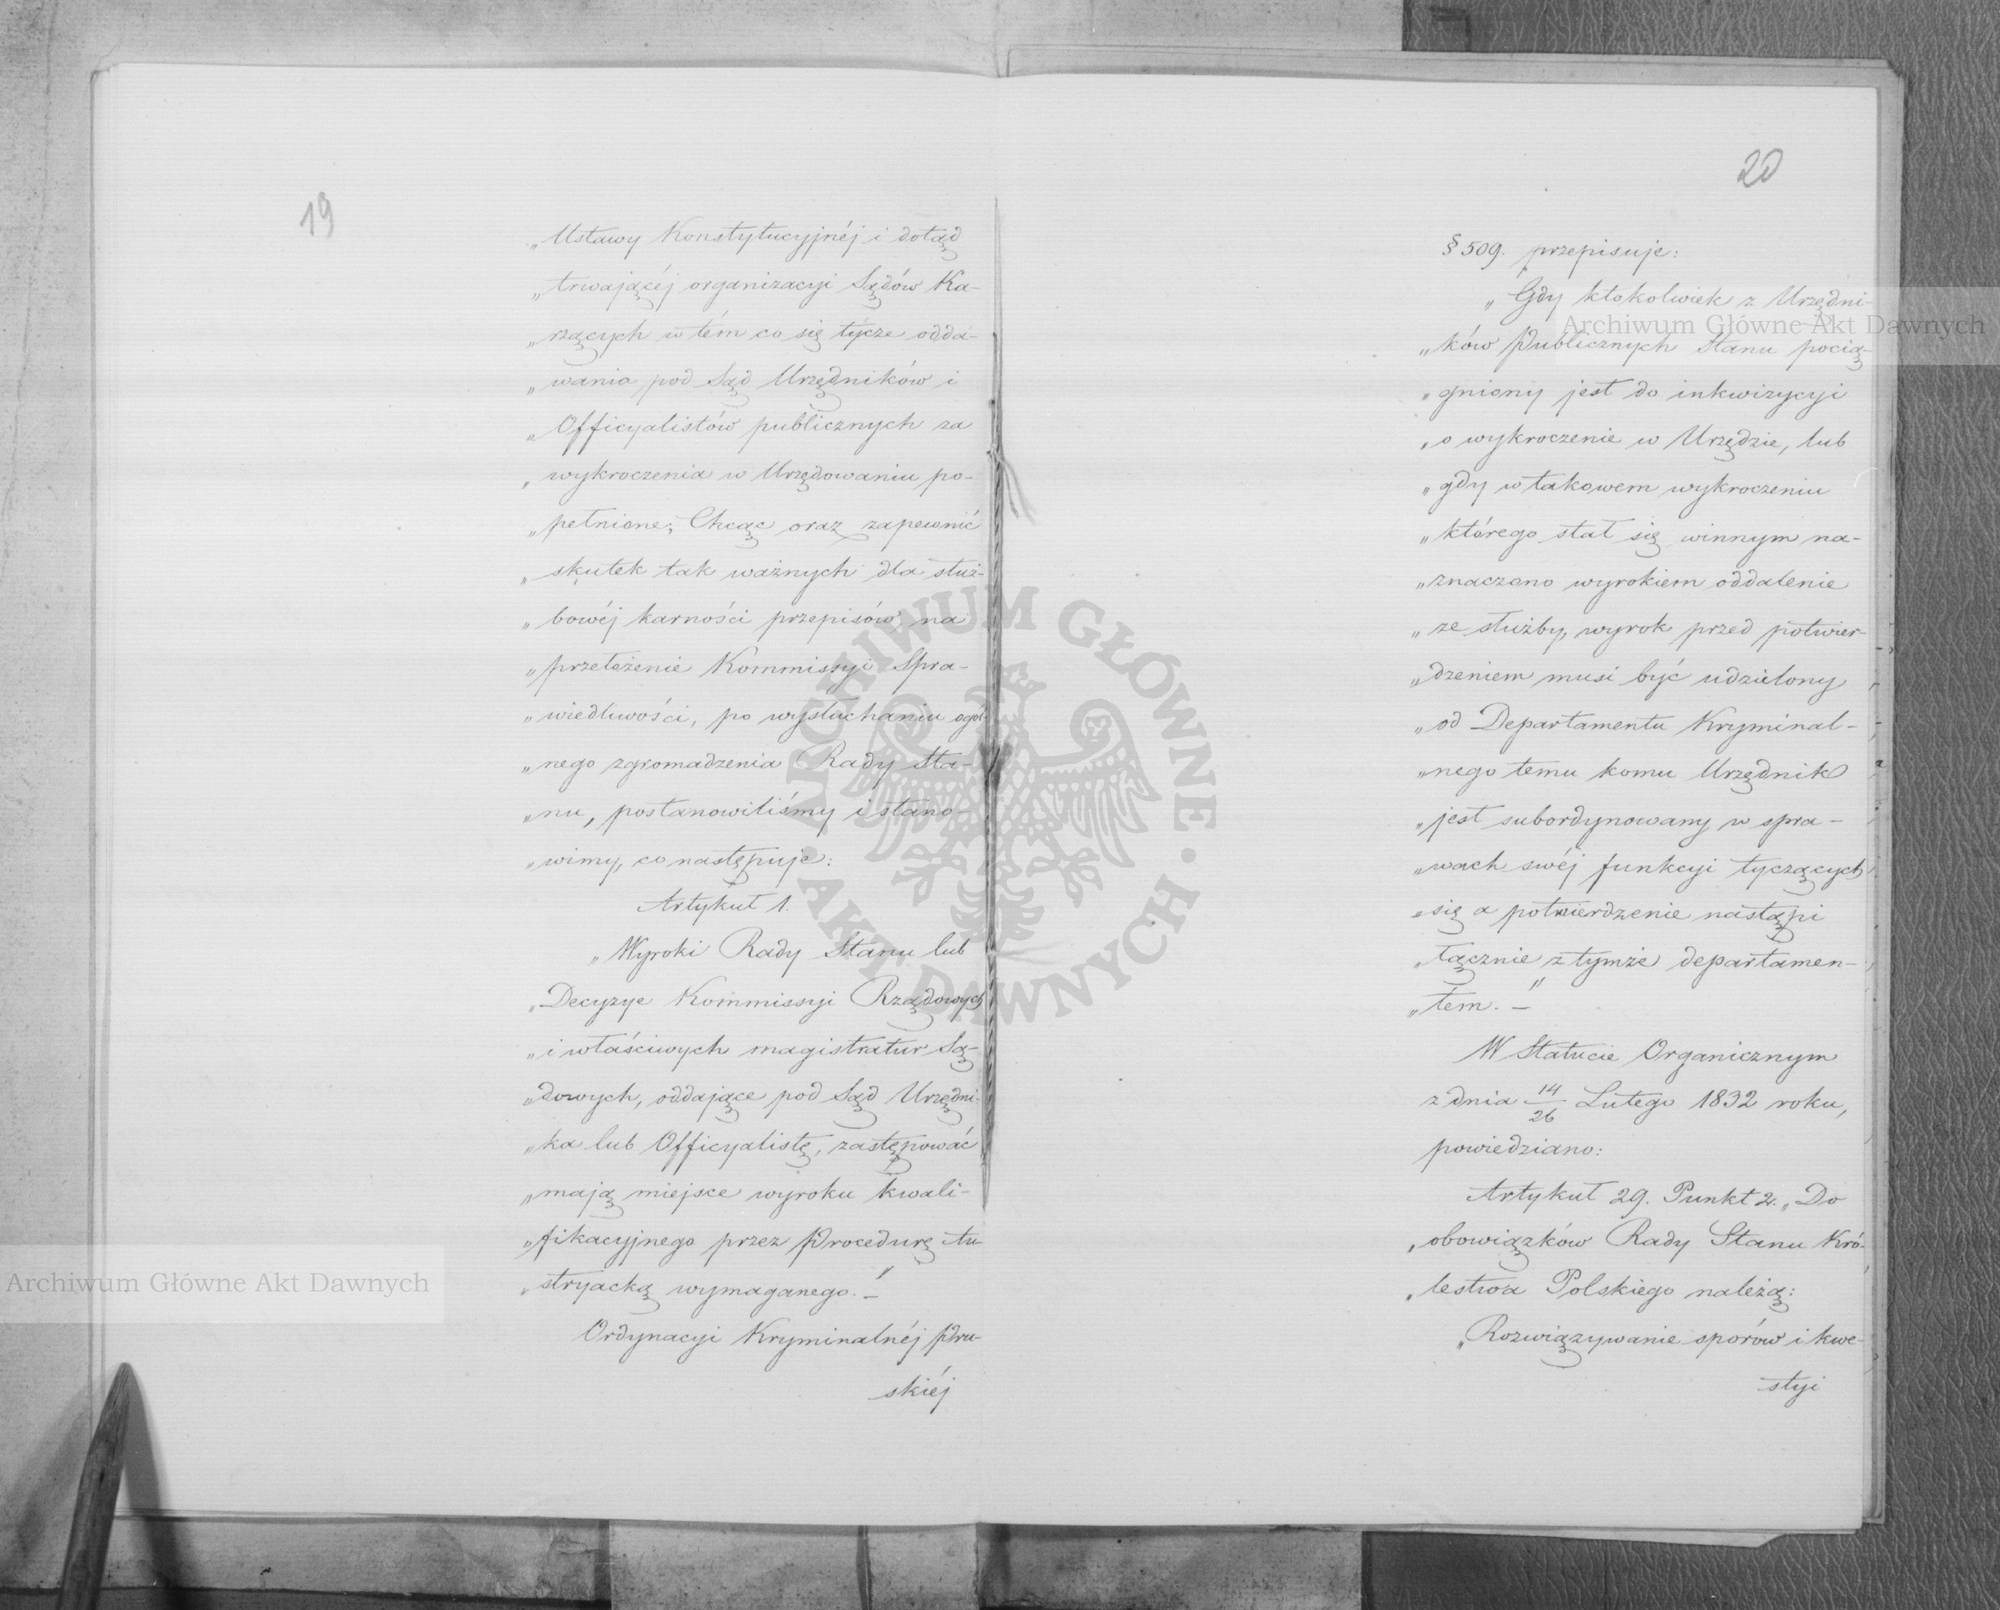 19
„Ustawy Konstytucyjnéj i dotąd
„trwającéj organizacyi Sądów Ka-
„rzących w tém co się tycze odda-
„wania pod Sąd Urzędników i
„Officyalistów publicznych za
„wykroczenia w Urzędowaniu po-
„pełnione; Chcąc oraz zapewnić
„skutek tak ważnych dla służ-
„bowéj karności przepisów, na
„przełożenie Kommissyi Spra-
„wiedliwości, po wysłuchaniu ogól-
„nego zgromadzenia Rady Sta-
„nu, postanowiliśmy i stano-
„wimy, co następuje:
Artykuł 1.
„Wyroki Rady Stanu lub
„Decyzye Kommissyi Rządowych
„i właściwych magistratur Są-
„dowych, oddające pod Sąd Urzędni-
„ka lub Officyalistę, zastępować
„mają miejsce wyroku kwali-
„fikacyjnego przez Procedurę Au-
„stryacką wymaganego.–"
Ordynacyi Kryminalnéj Pru-
skiéj
20
§ 509. przepisuje:
„Gdy ktokolwiek z Urzędni-
„ków Publicznych Stanu pocią-
„gniony jest do inkwizycyi
„o wykroczenie w Urzędzie, lub
„gdy w takowem wykroczeniu
„którego stał się winnym na-
„znaczono wyrokiem oddalenie
„ze służby, wyrok przed potwier-
„dzeniem musi być udzielony
„od Departamentu Kryminal-
„nego temu komu Urzędnik
„jest subordynowany w spra-
„wach swéj funkcyi tyczących
„się a potwierdzenie nastąpi
„łącznie z tymże departamen-
„tem.–"
W Statucie Organicznym
z dnia 14/26 Lutego 1832 roku,
powiedziano:
Artykuł 29. Punkt 2. „Do
„obowiązków Rady Stanu Kró-
„lestwa Polskiego należą:
„Rozwiązywanie sporów i kwe-
styi
Archiwum Główne Akt Dawnych
Archiwum Główne Akt Dawnych
ARCHIWUM GŁÓWNE · AKT DAWNYCH ·